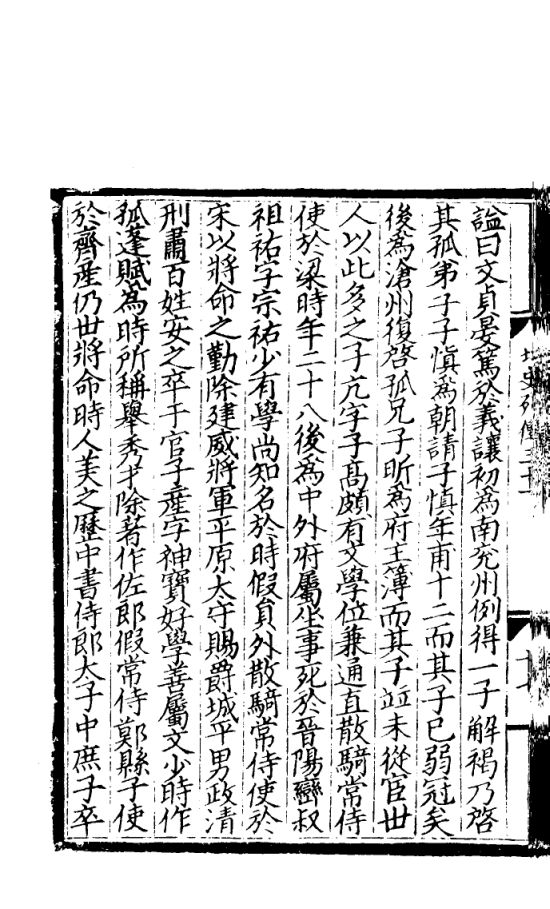 諡曰文貞晏篤於義讓初為南兖州例得一子解褐乃啓
其孤弟子子慎為朝請子慎年甫十二而其子已弱冠矣
後為滄州復啓孤兄子昕為府主簿而其子並未從宦世
人以此多之子亢字子高頗有文學位兼通直散騎常侍
使於梁時年二十八後為中外府屬坐事死於晉陽巒叔
祖祐字宗祐少有學尚知名於時假員外散騎常侍使於
宋以將命之勤除建威將軍平原太守賜爵城平男政清
刑肅百姓安之卒于官子產字神寶好學善屬文少時作
孤蓬賦為時所稱舉秀才除著作佐郎假常侍鄚縣子使
於齊產仍世將命時人美之歷中書侍郎太子中庶子卒